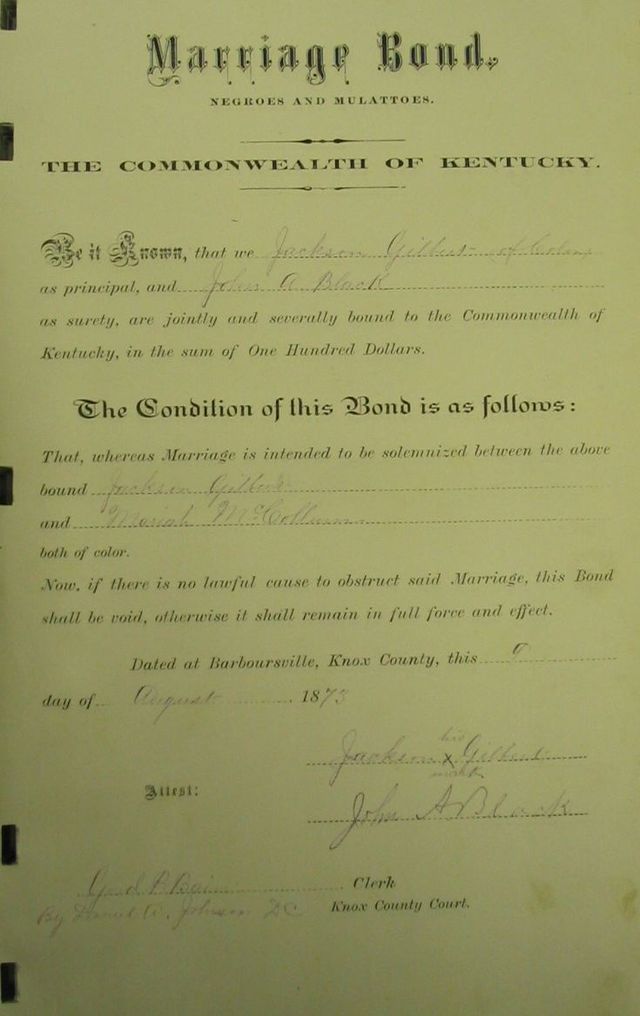 Marriage Bond.
NEGROES AND MULATTOES.
THE COMMONWEALTH OF KENTUCKY.
Be it Known, that we Jackson Gilbert of
as principal, and John A Black
as surety, are jointly and severally bound to the Commonwealth of
Kentucky, in the sum of One Hundred Dollars.
The Condition of this Bond is as follows:
That, whereas Marriage is intended to be solemnized between the above
bound Jackson Gilbert
and Moriah McCollum
both of color.
Now, if there is no lawful cause to obstruct said Marriage, this Bond
shall be void, otherwise it shall remain in full force and effect.
Dated at Barboursville, Knox County, this
day of August 1873
his
Jackson x Gilbert
mark
Attest:
John A Black
Clerk
By Daniel Johnson DC
Knox County Court.